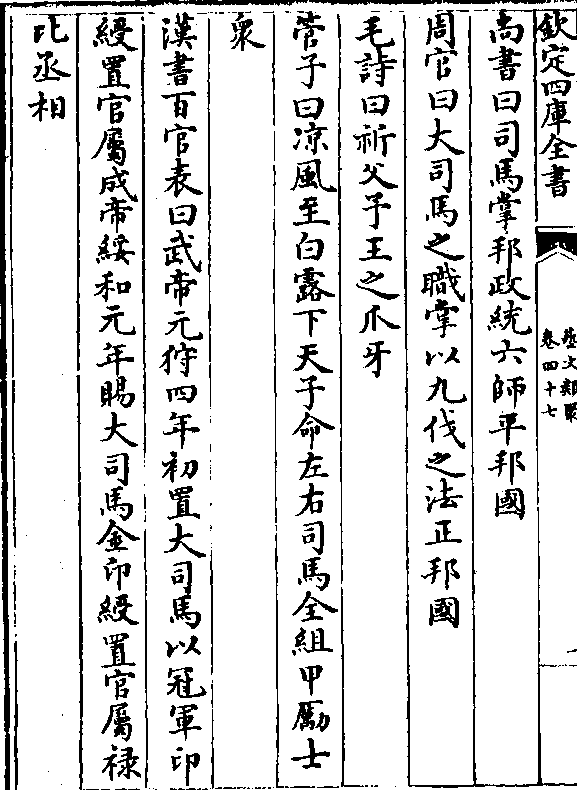 欽定四庫全書
藝文類聚
卷四十七
尚書曰司馬掌邦政統六師平邦國
周官曰大司馬之職掌以九伐之法正邦國
毛詩曰祈父予王之爪牙
管子曰凉風至白露下天子命左右司馬全組甲勵士
衆
漢書百官表曰武帝元狩四年初置大司馬以冠軍印
綬置官屬成帝綏和元年賜大司馬金印綬置官屬禄
比丞相